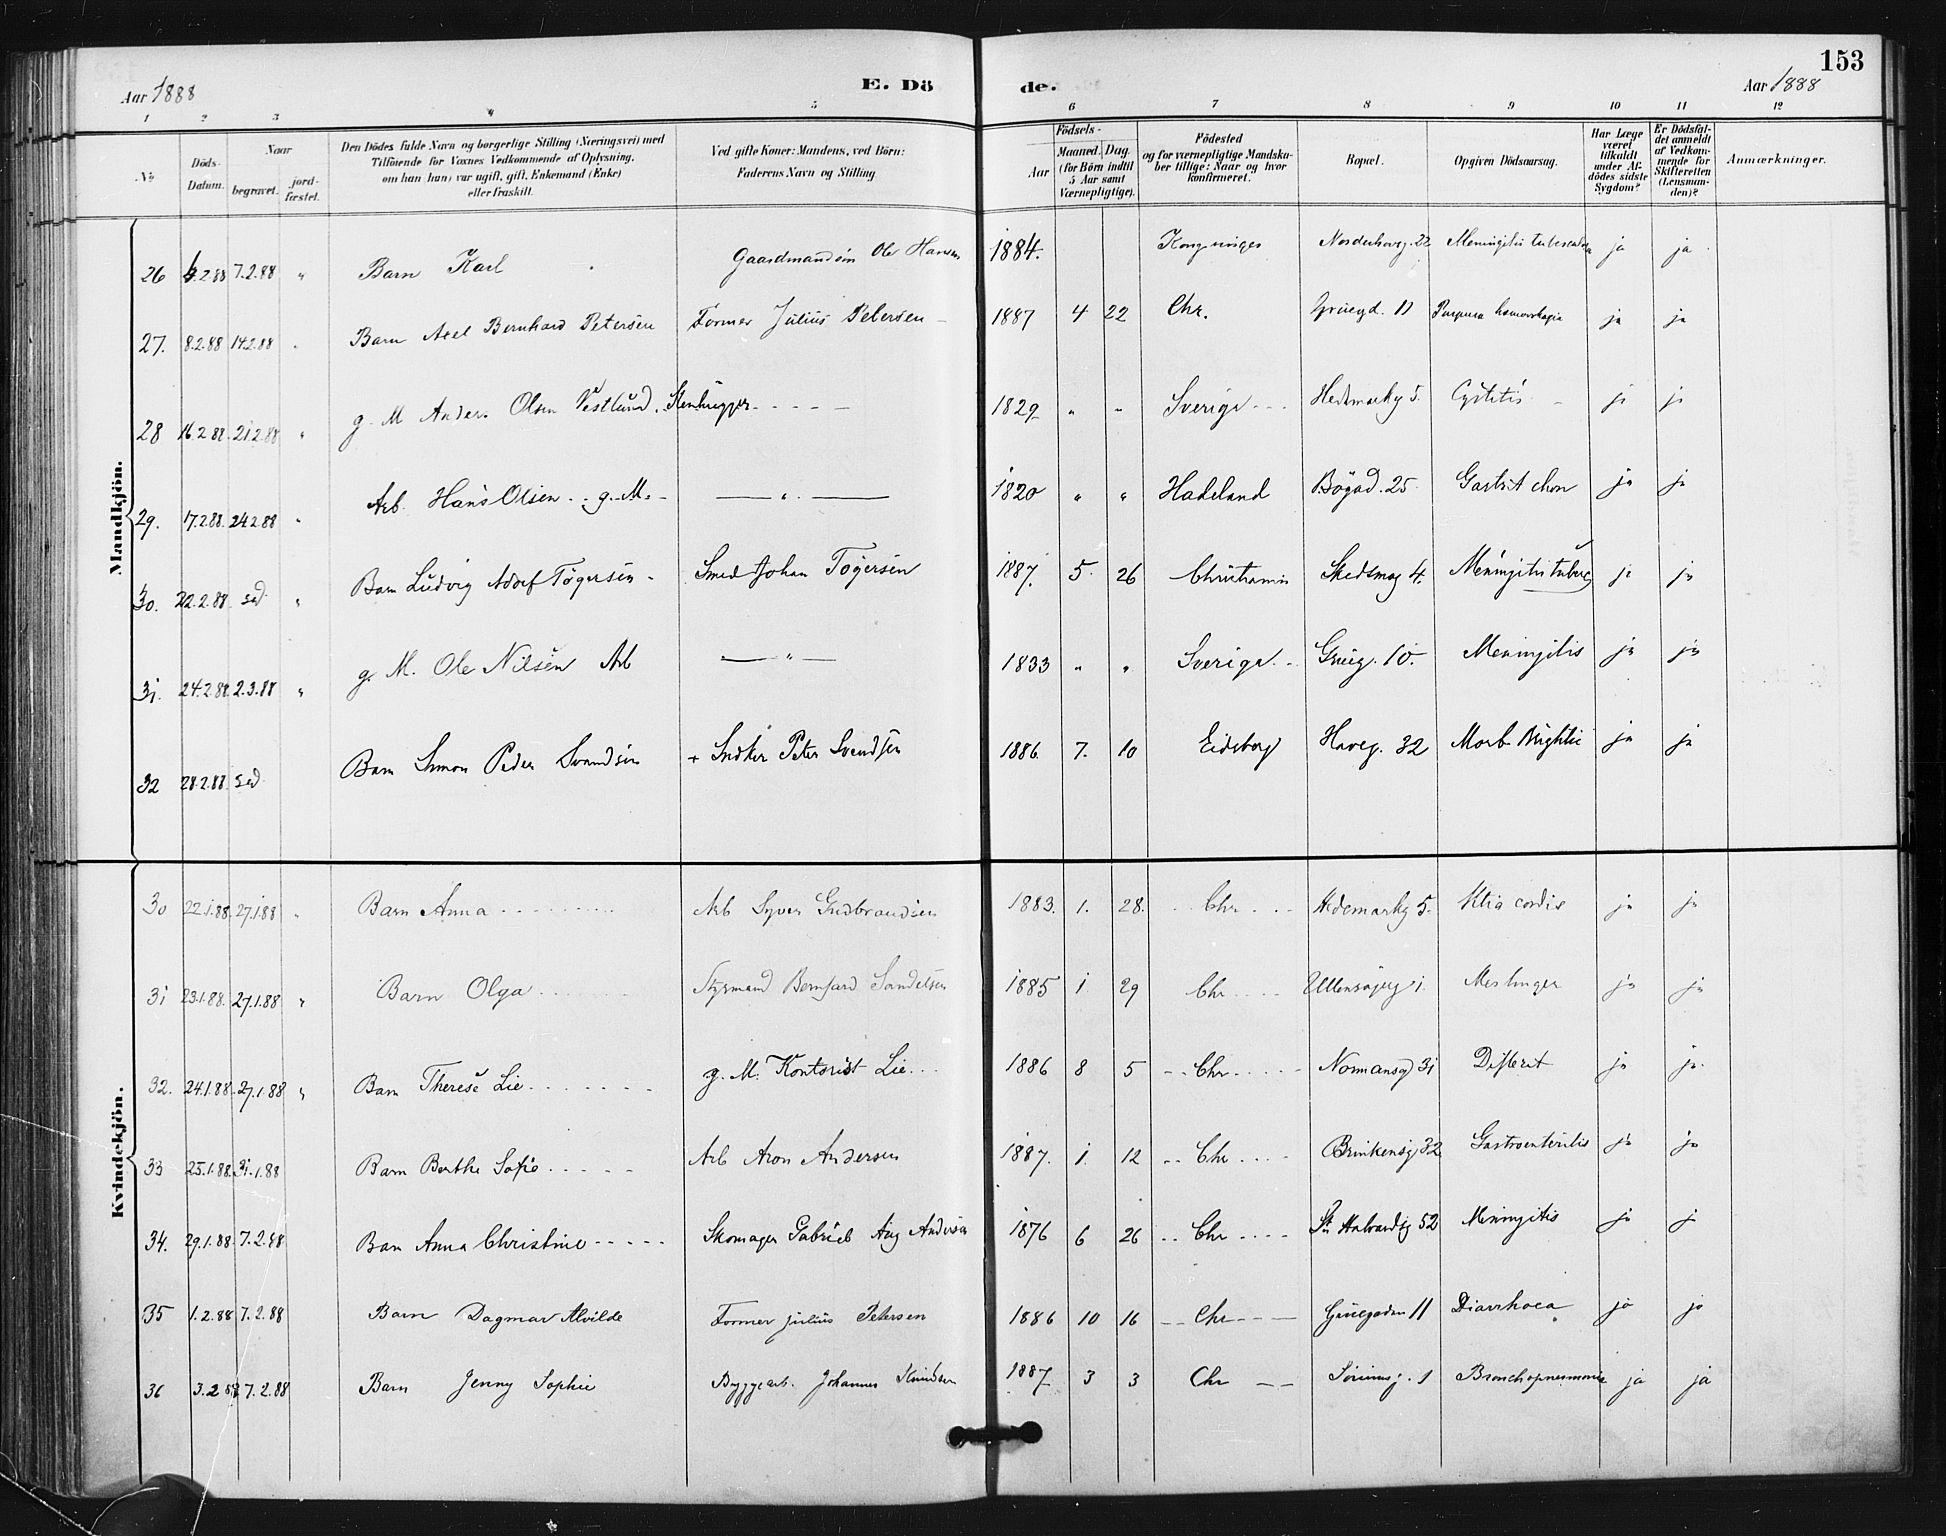 153
Aar 1888 E. Dö de. Aar 1888
1 2 3 4 5 6 7 8 9 10 11 12
No
Döds-Datum.
Naar begravet. jordfæstet.
Den Dödes fulde Navn og borgerlige Stilling (Næringsvei) med Tilföiende for Voxnes Vedkommende af Oplysning, om han (hun) var ugift, gift, Enkemand (Enke) eller fraskilt.
Ved gifte Koner: Mandens, ved Börn: Faderens Navn og Stilling
Födsels-
Aar Maaned. Dag. (for Börn indtil 5 Aar samt Værnepligtige).
Födested og for værnepligtige Mandskaber tillige: Naar og hvor konfirmeret.
Bopæl.
Opgiven Dödsaarsag.
Har Læge været tilkaldt under Afdödes sidste Sygdom?
Er Dödsfaldet anmeldt af Vedkommende for Skifteretten (Lensmanden)?
Anmærkninger.
Mandkjön.
26 2.88 7.2.88 " Barn Karl Gaardmandsön Ole Hansen 1884. Kongsvinger 22 Meningitis ja ja
27. 8.2.88 14.2.88 " Barn Axel Bernhard Petersen Former Julius Petersen 1887 4 22 Chr. Grüegd. 11 Purpura hæmorrhagia ja ja
28 16.2.88. 21.2.88 " g. M Anders Olsen Vestlund. Stenhugger 1829 " " Sverige Hedemarkg 5. Cystitis ja ja
29. 17.2.88. 24.2.88 " Arb. Hans Olsen g. M. " 1820 " " Hadeland Bögad. 25. Gastrit chon ja ja
30. 22.2.88. sed. " Barn Ludvig Adolf Tögersen Smed Johan Tögersen 1887. 5. 26 Christiania Skedsmog 4. Meningitis tuberc ja ja
31. 24.2.88. 2.3.88 " g. M. Ole Nilsen Arb " 1833 " " Sverige Grüeg. 10. Meningitis ja ja
32 28.2.88. sed Barn Simon Peder Svendsen Snedker Peter Svendsen 1886. 7. 10 Eidsberg Haveg. 32 Morb. Brightii ja ja
Kvindekjön.
30 22.1.88. 27.1.88 " Barn Anna Arb Syver Gudbrandsen 1883. 1. 28. Chr. Hedemarkg 5. Vitia cordis ja ja
31 23.1.88. 27.1.88 " Barn Olga Styrmand Bernhard Sandelsen 1885 1 29 Chr Ullensagerg 1. Meslinger ja ja
32. 24.1.88. 27.1.88 " Barn Therese Lie g. M. Kontorist Lie 1886 8 5 Chr Normansgd 31 Difterit ja ja.
33 25.1.88. 31.1.88 Barn Berthe Sofie Arb Aron Andersen 1887. 1. 12 Chr Brinkensg 32 Gastroenteritis ja ja
34. 29.1.88. 7.2.88 Barn Anna Christine Skomager Gabriel Aug Andersen 1876 6 26 Chr St. Halvardsg 52 Meningitis ja ja
35 1.2.88 7.2.88 Barn Dagmar Alvilde Former Julius Petersen 1886 10 16 Chr Grüegaden 11 Diarrhoea ja ja
36 3.2.88 7.2.88 Barn Jenny Sophie Byggearb. Johannes Knudsen 1887 3 3 Chr 1 Bronchopneumonia ja ja